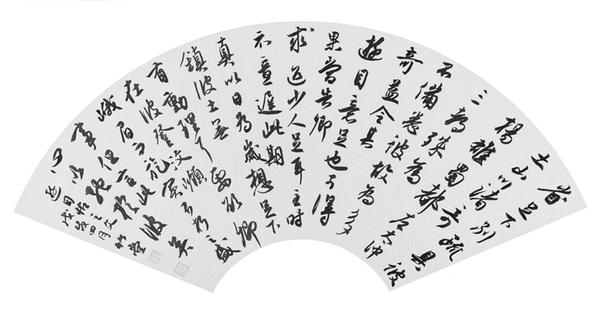 省足下別疏具彼
土山川諸奇
楊雄蜀都左太沖
三都殊為
不備悉彼故為多
奇益令其
遊目意足也可得
果當告卿
求迎少人足耳至時
示意遲此期
真以日為歲想足下
鎮彼土未
有動理耳要欲及卿
在彼登汶嶺
峨眉而旋實不朽之盛
事但言此
心以馳於彼矣
目帖
四月